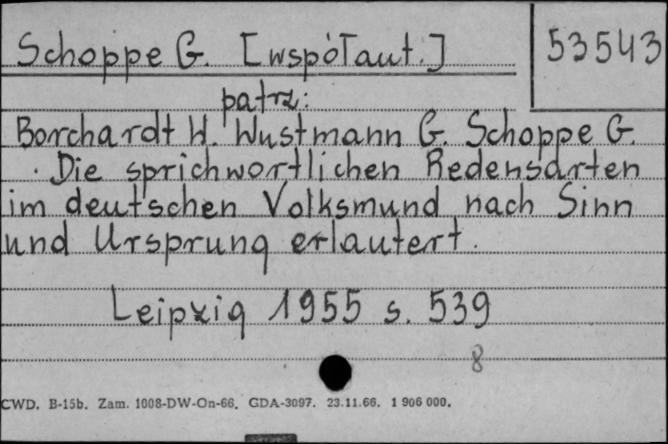 Schoppe G. [współaut.]
53543
patrz:
Borchardt W. Wustmann G. Schoppe G.
. Die sprichwortlichen Redensarten
im deutschen Volksmund nach Sinn
und Ursprung erlautert.
Leipzig 1955 s. 539
8
CWD. B-15b. Zam. 1008-DW-On-66. GDA-3097. 23.11.66. 1 906 000.